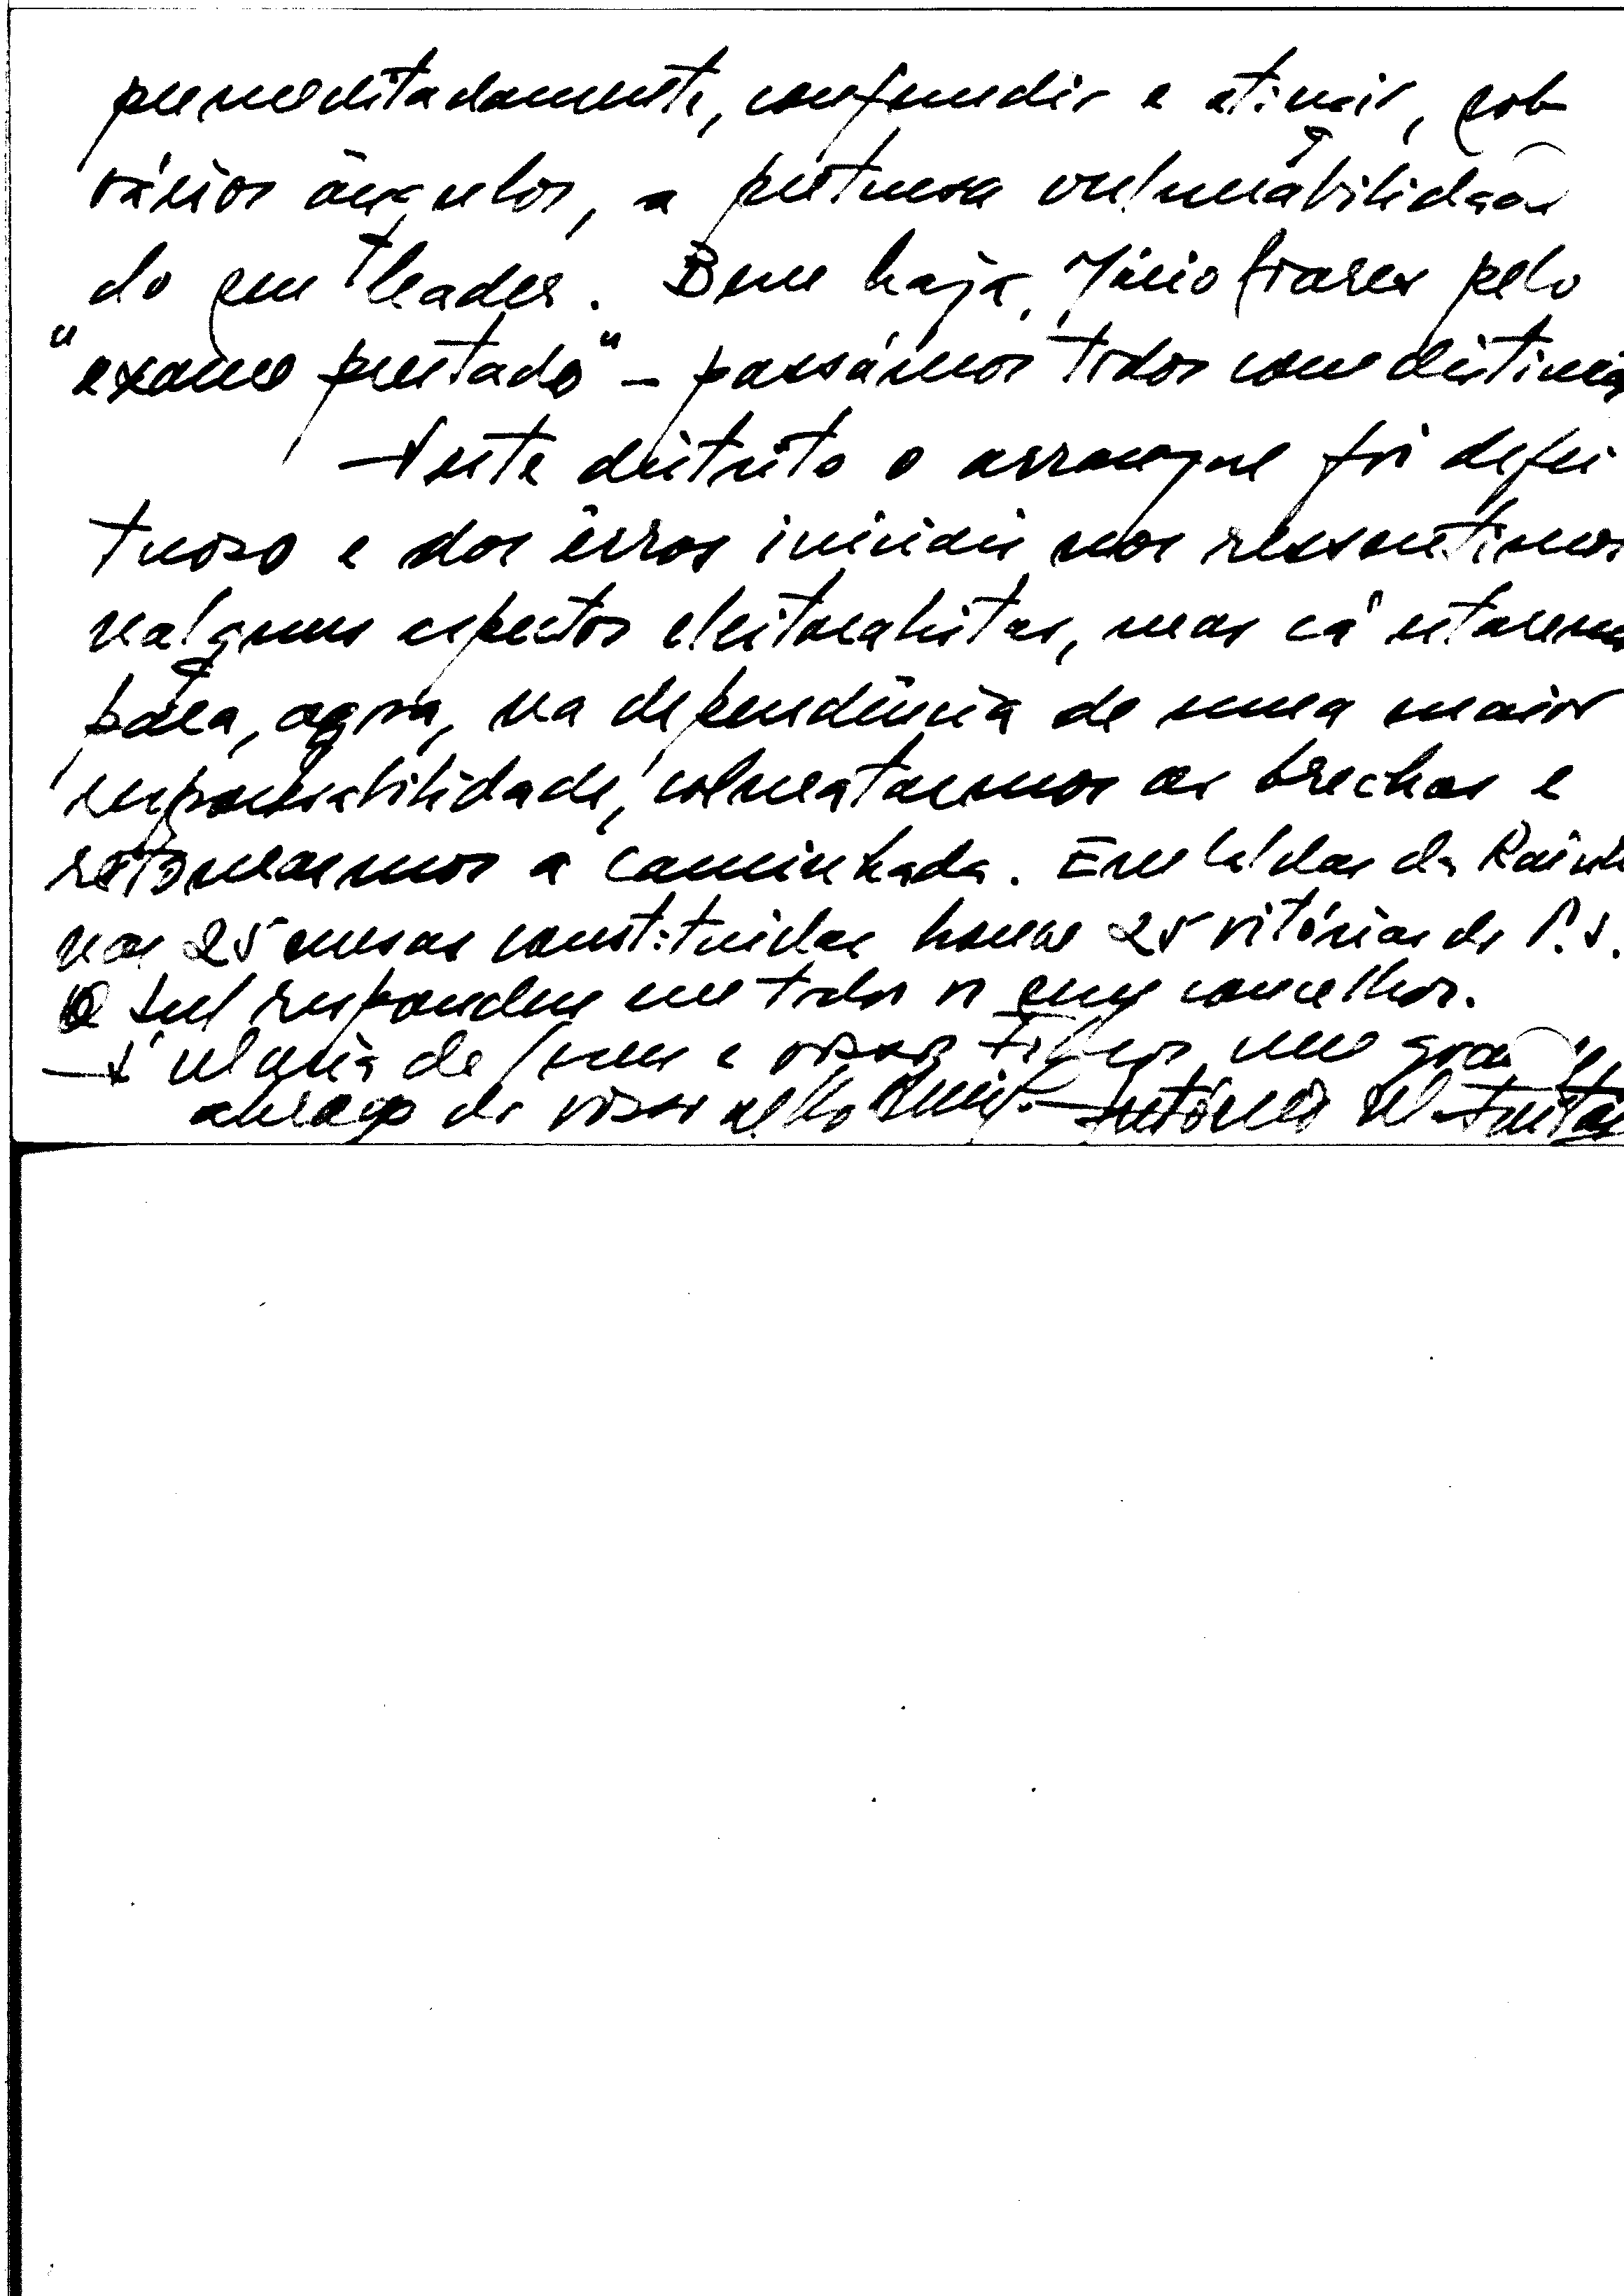 premeditadamente, confundir e atingir, sob
vários ângulos, a pretensa vulnerabilidade
do seu leader. Bem haja, Mário Soares pelo
"exame prestado" - passámos todos com distinç
Neste distrito o arranque foi defei
tuoso e dos êrros iniciais nos ressentimos
nalguns aspectos eleitoralistas, mas cá estaremos
para, agora, na dependência de uma maior
responsabilidade, colmatarmos as brechas e
retomarmos a caminhada. Em Caldas da Rainha
nas 25 mesas constituidas houve 25 vitórias do P.S.
O Sul respondeu em todos os seus concelhos.
À Maria de Jesus e vossos Filhos um grande
abraço do vosso velho Amigo António